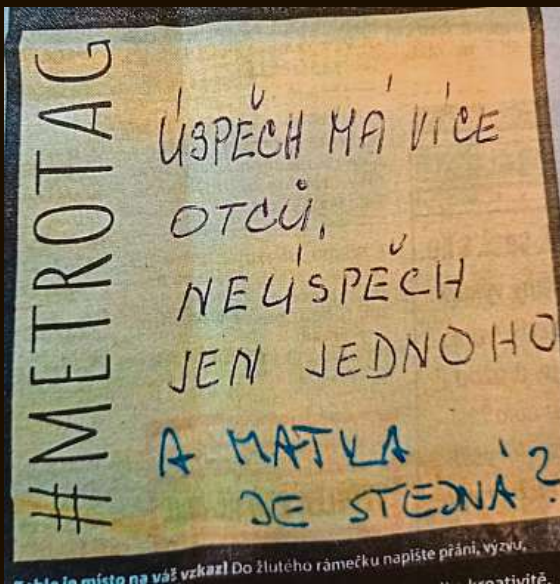 #METROTAG
ÚSPĚCH MÁ VÍCE
OTCŮ,
NEÚSPĚCH
JEN JEDNOHO
A MATKA
JE STEJNÁ?
místo na váš vzkaz! Do žlutého rámečku napište přání, výzvu,
kreativitě